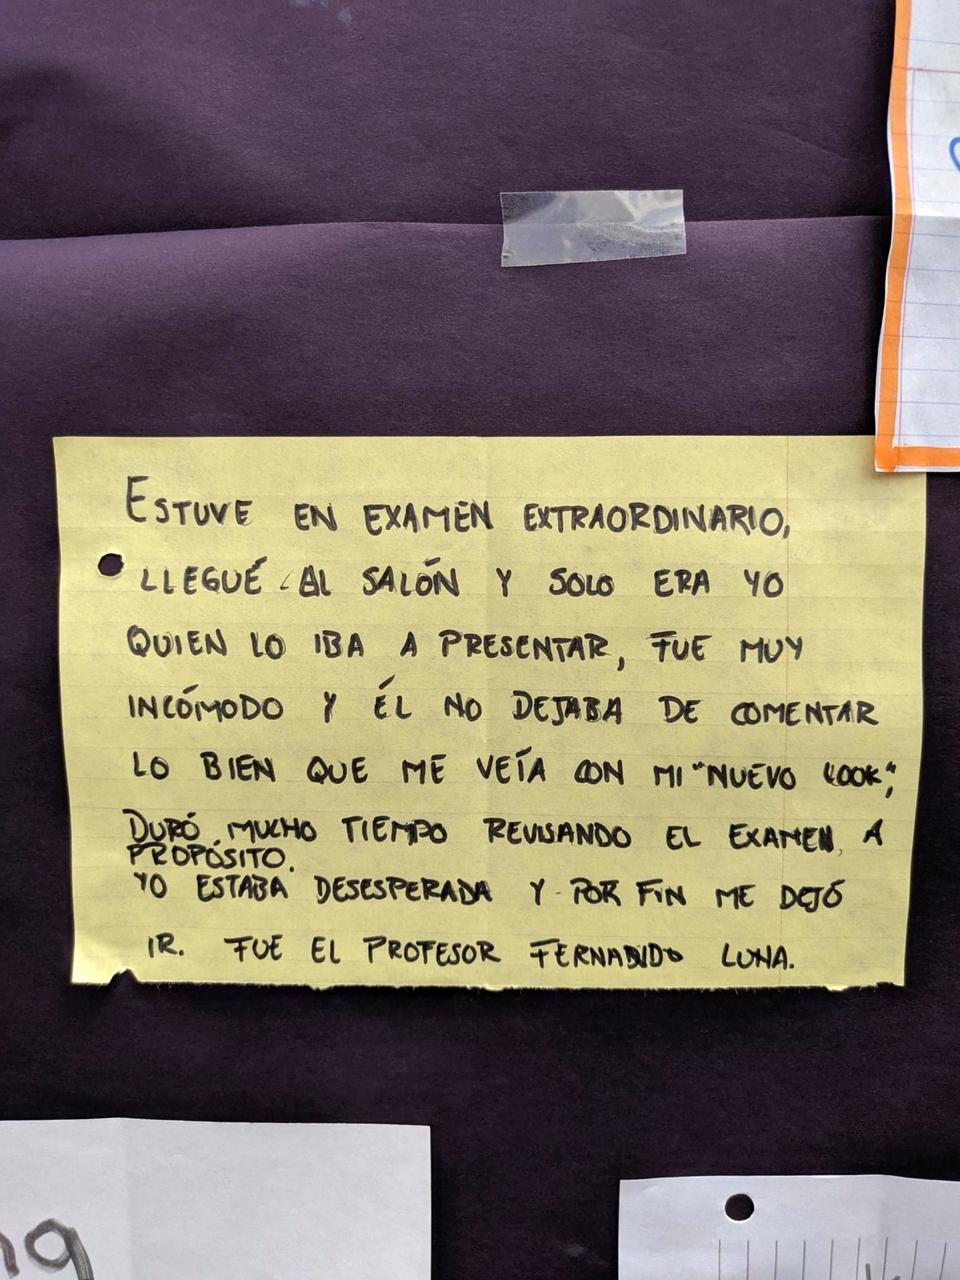 ESTUVE EN EXAMEN EXTRAORDINARIO,
LLEGUÉ AL SALÓN Y SOLO ERA YO
QUIEN LO IBA A PRESENTAR, FUE MUY
INCÓMODO Y ÉL NO DEJABA DE COMENTAR
LO BIEN QUE ME VEÍA CON MI "NUEVO LOOK",
DURÓ MUCHO TIEMPO REVISANDO EL EXAMEN, A
PROPÓSITO.
YO ESTABA DESESPERADA Y POR FIN ME DEJÓ
IR. FUE EL PROFESOR FERNANDO LUNA.